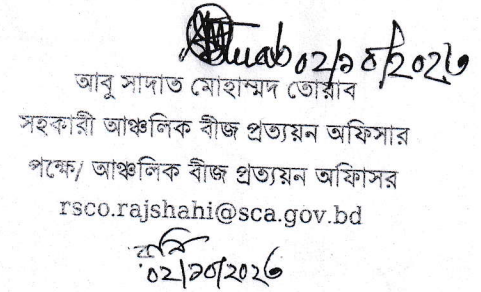 ০২/১০/২০২৩
আবু সাদাত মোহাম্মদ তোয়াব
সহকারী আঞ্চলিক বীজ প্রত্যয়ন অফিসার
পক্ষে/ আঞ্চলিক বীজ প্রত্যয়ন অফিাসর
rsco.rajshahi@sca.gov.bd
০২/১০/২০২৩